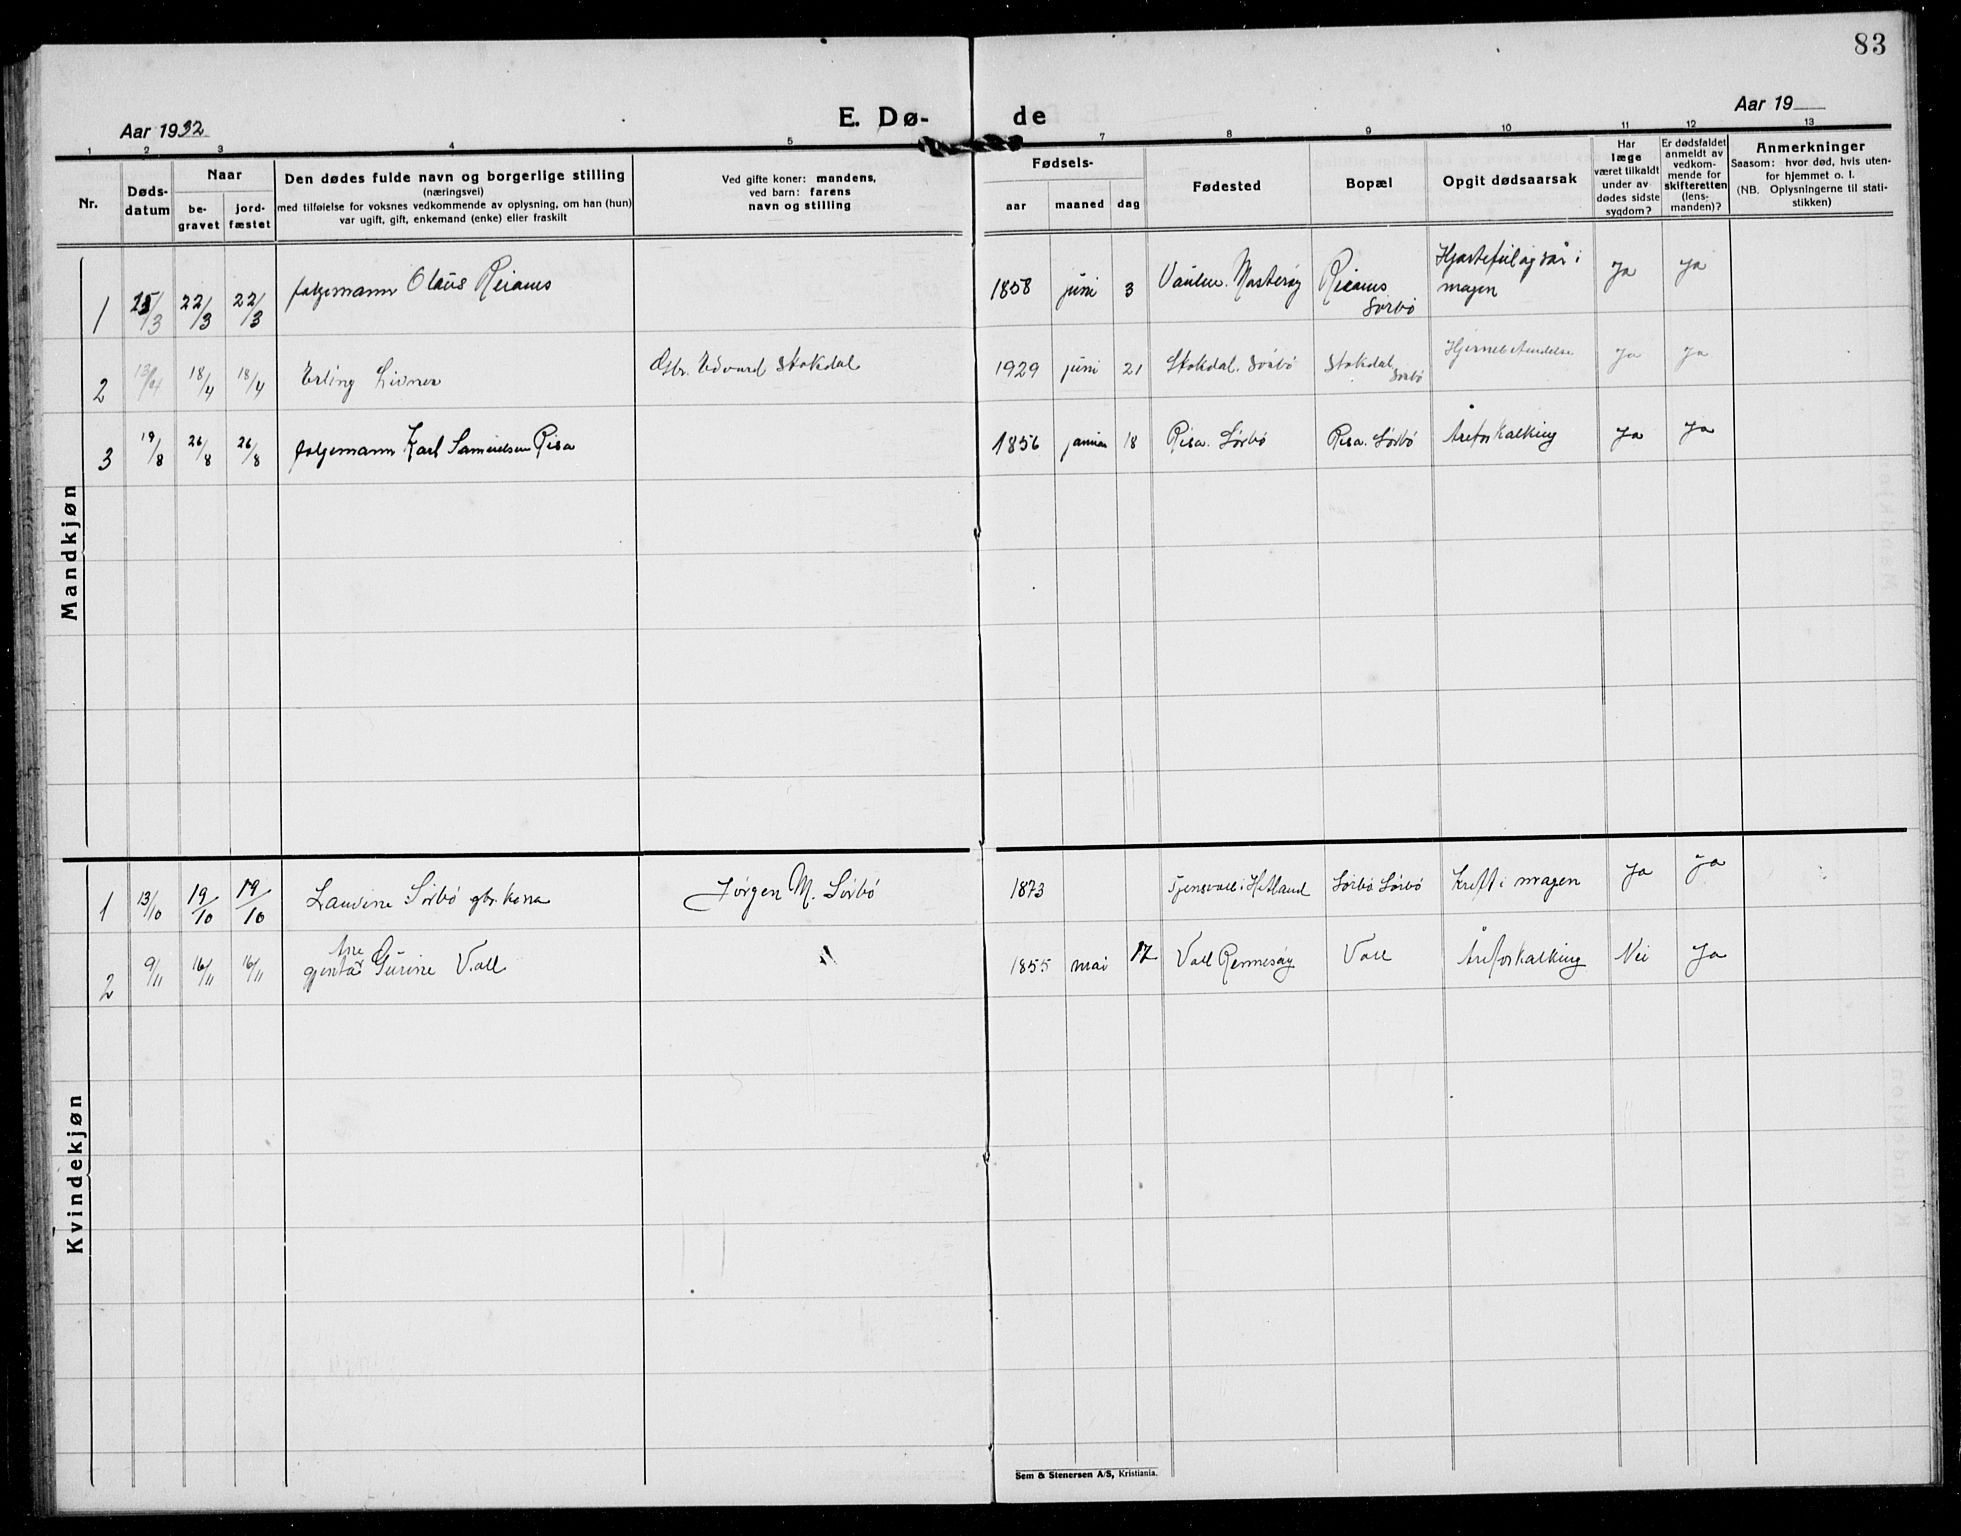 83
Aar 1932
E. Dø-
de
Aar 19
1 2 3 4 5 7 8 9 10 11 12 13
Nr.
Døds-
datum
Naar
be-
gravet
jord-
fæstet
Den dødes fulde navn og borgerlige stilling
(næringsvei)
med tilføielse for voksnes vedkommende av oplysning, om han (hun)
var ugift, gift, enkemand (enke) eller fraskilt
Ved gifte koner: mandens,
ved barn: farens
navn og stilling
Fødsels-
aar maaned dag
Fødested
Bopæl
Opgit dødsaarsak
Har
læge
været tilkaldt
under av-
dødes sidste
sygdom?
Er dødsfaldet
anmeldt av
vedkom-
mende for
skifteretten
(lens-
manden)?
Anmerkninger
Saasom: hvor død, hvis uten-
for hjemmet o. l.
(NB. Oplysningerne til stati-
stikken)
Mandkjøn
1 15/3 22/3 22/3 folgemann Olaus Reianes 1858 juni 3 Vaulen. Mosterøy Reianes Sørbø Hjertefeil og sår i magen Ja Ja
2 13/4 18/4 18/4 Erling Gbr. Edvard Stokdal 1929 juni 21 Stokdal. Sørbø Stokdal Sørbø Hjernebetendelse Ja Ja
3 19/8 26/8 26/8 folgemann Karl Samuelsen Risa 1856 januar 18 Risa. Sørbø Risa. Sørbø Åreforkalking Ja Ja
Kvindekjøn
1 13/10 19/10 19/10 Laurine Sørbø gbr.kona Jørgen M. Sørbø 1873 Tjensvoll i Hetland Sørbø Sørbø Kreft i magen Ja Ja
2 9/11 16/11 16/11 gjenta Ane Gurine Voll 1855 mai 17 Voll Rennesøy Voll Åreforkalking Nei Ja
Sem & Stenersen A/S, Kristiania.